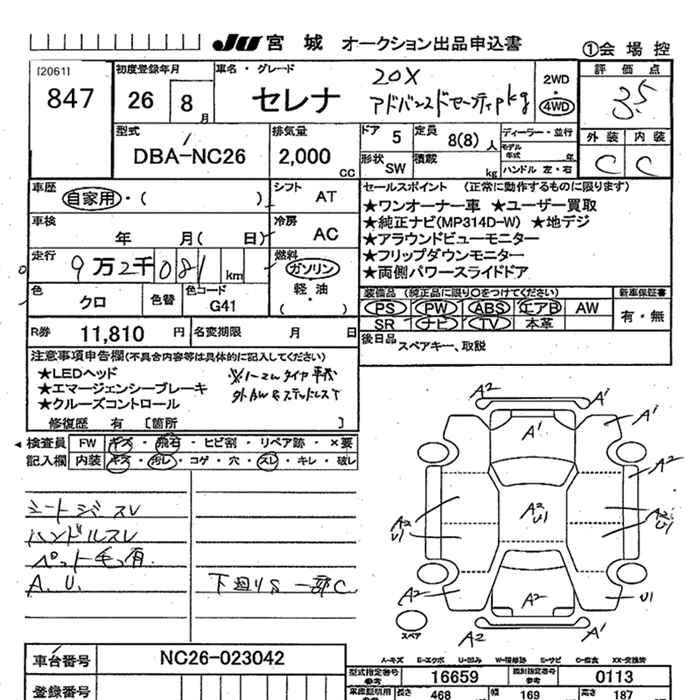 JU 宮城 オークション出品申込書 ①会場控
[2061]
847
初度登録年月
26 8月
車名・グレード
セレナ
20X
アドバンスドセーフティpkg
2WD
・
4WD
評価点
3.5
外装 内装
C C
型式
DBA-NC26
排気量
2,000 cc
ドア 5
定員 8(8)人
ディーラー・並行
モデル年式 年
形状 SW
積載 kg
ハンドル 左・右
車歴
自家用・( )
シフト AT
車検
年 月( 日)
冷房 AC
走行
9万2千081 km
燃料
ガソリン
・
軽油
( )
色 クロ
色替
色コード G41
R券 11,810 円
名変期限 月 日
セールスポイント (正常に動作するものに限ります)
★ワンオーナー車 ★ユーザー買取
★純正ナビ(MP314D-W) ★地デジ
★アラウンドビューモニター
★フリップダウンモニター
★両側パワースライドドア
装備品 (純正品に限り○をつけてください)
PS PW ABS エアB AW
SR ナビ TV 本革
新車保証書
有・無
後日品 スペアキー、取説
注意事項申告欄(不具合内容等は具体的に記入してください)
★LEDヘッド
★エマージェンシーブレーキ
★クルーズコントロール
修復歴 有 〔箇所 〕
検査員 FW キズ・飛石・ヒビ割・リペア跡・×要
記入欄 内装 キズ・汚レ・コゲ・穴・スレ・キレ・破レ
シートシミスレ
ハンドルスレ
ペット毛有
A.U.
下廻りS 一部C
A2
A1
A1
A1
A2
A2
U1
A2
U1
A2
U1
A2
A2
U1
A2
A1
スペア
A-キズ E-エクボ U-凹み W-補修跡 S-サビ C-腐食 XX-交換済
車台番号 NC26-023042
登録番号
型式指定番号 参考 16659
類別指定番号 参考 0113
長さ 468 幅 169 高さ 187